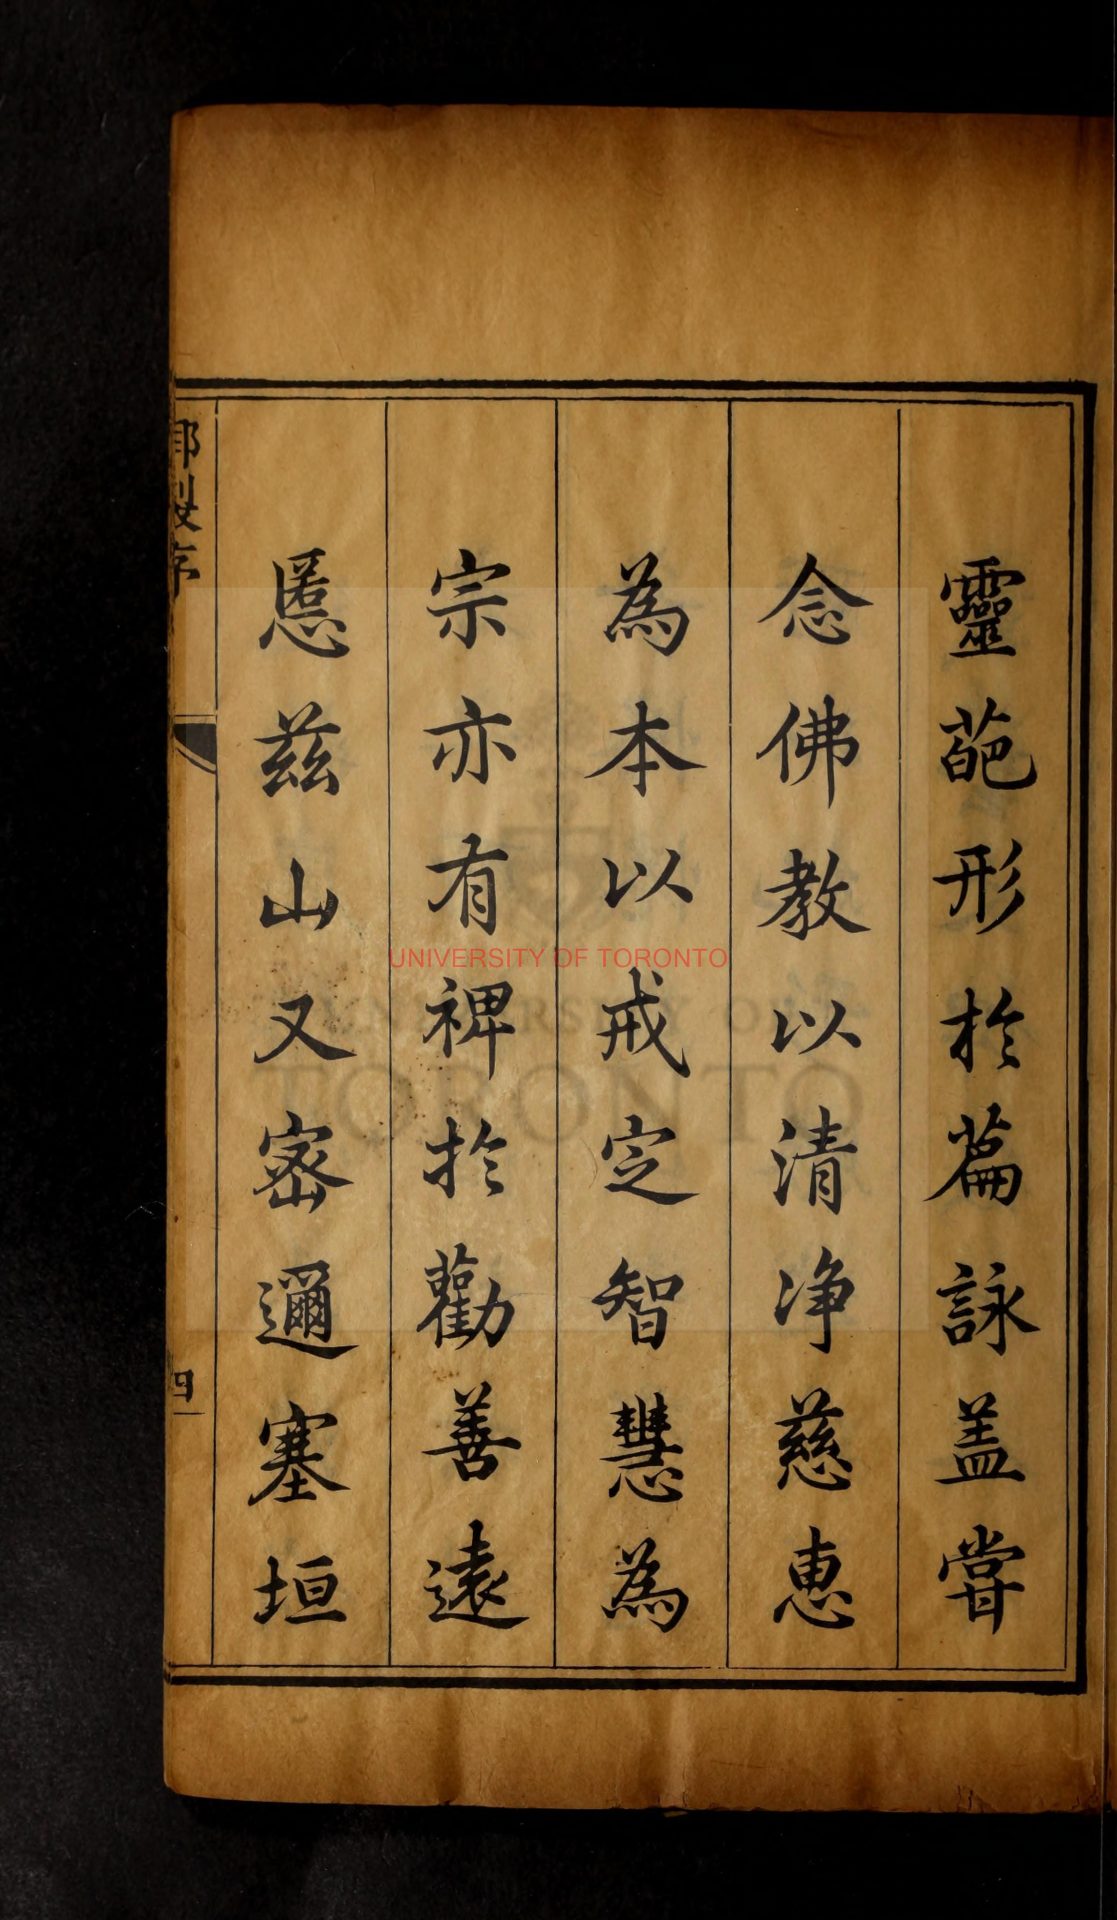 靈葩形於篇詠盖嘗
念佛教以清浄慈惠
為本以戒定智慧為
宗亦有裨於勸善遠
慝兹山又密邇塞垣
御製序
四
UNIVERSITY OF TORONTO
UNIVERSITY OF
TORONTO